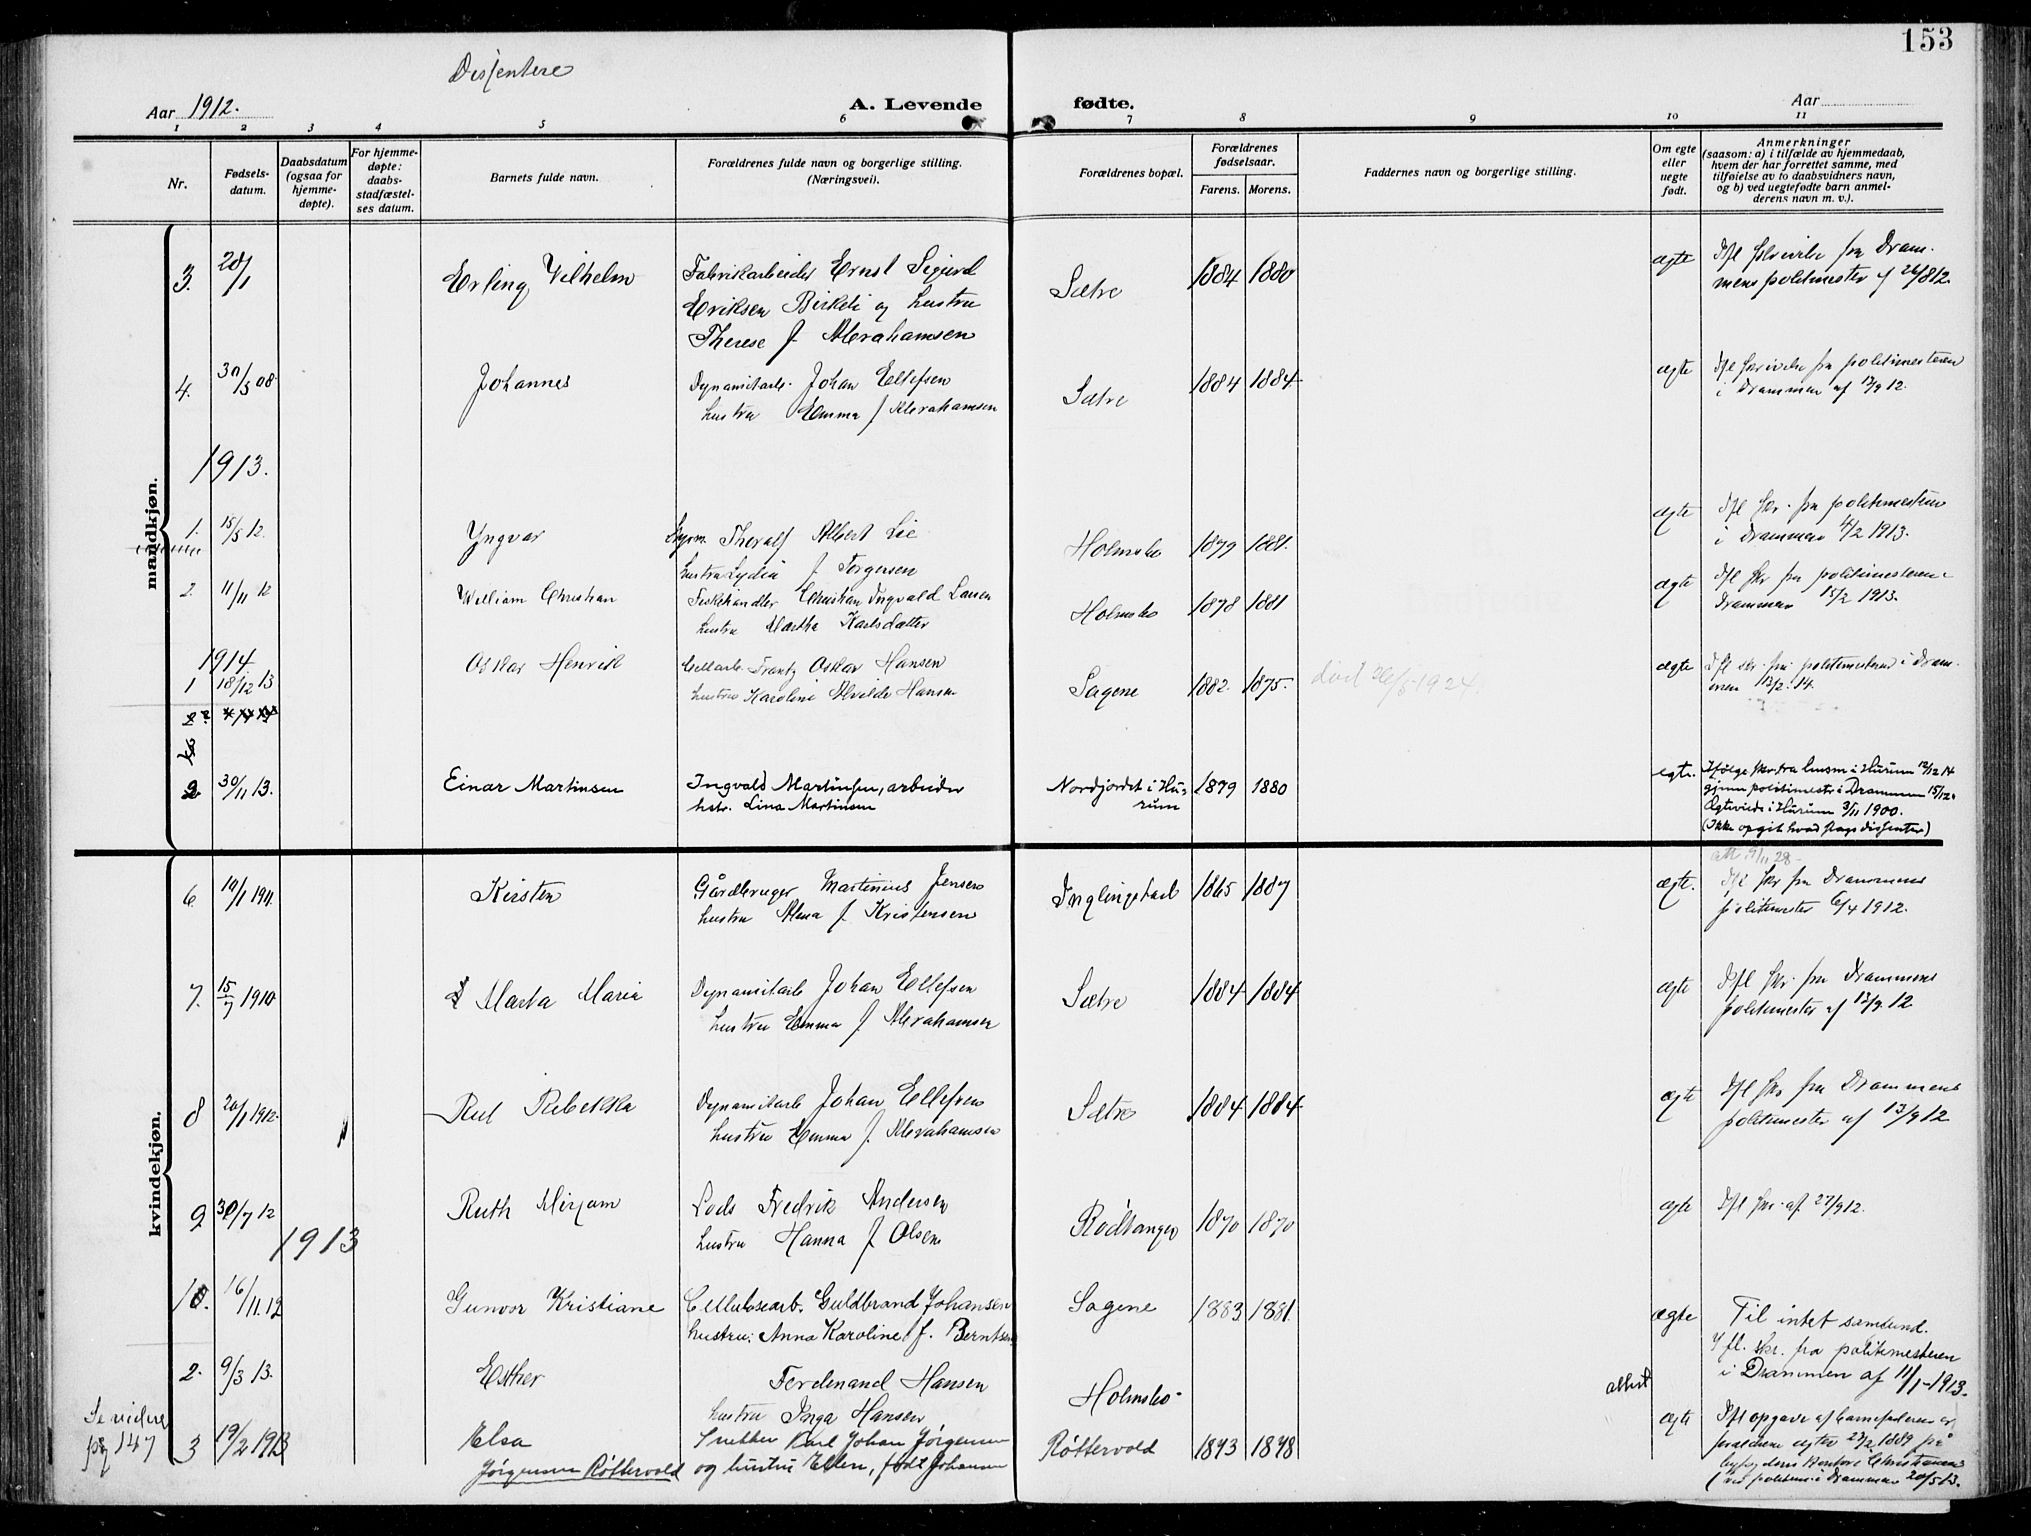 153
Dissentere
Aar 1912.
A. Levende fødte.
Aar
1 2 3 4 5 6 7 8 9 10 11
Nr.
Fødsels-
datum.
Daabsdatum
(ogsaa for
hjemme-
døpte).
For hjemme-
døpte:
daabs-
stadfæstel-
ses datum.
Barnets fulde navn.
Forældrenes fulde navn og borgerlige stilling.
(Næringsvei).
Forældrenes bopæl.
Forældrenes
fødselsaar.
Farens. Morens.
Faddernes navn og borgerlige stilling.
Om egte
eller
uegte
født.
Anmerkninger
(saasom: a) i tilfælde av hjemmedaab,
hvem der har forrettet samme, med
tilføielse av to daabsvidners navn,
og b) ved uegtefødte barn anmel-
derens navn m. v.).
mandkjøn.
3. 20/1 Erling Vilhelm Fabrikarbeider Ernst Sigurd Sætre 1884 1880 ægte Ifl skrivelse fra Dram-
Eriksen Birkeli og hustru mens politimester af 26/8 12.
Therese f Abrahamsen
4. 30/5 08. Johannes Dynamitarb. Johan Ellefsen Sætre 1884 1884 ægte Ifl skrivelse fra politimesteren
hustru Emma f Abrahamsen i Drammen af 13/9 12.
1913.
1. 15/5 12. Yngvar Thoralf Albert Lie Holmsbo 1879 1881. ægte Ifl skr. fra politimesteren
hustru Lydia f Jørgensen i Drammen 4/2 1913.
2 11/11 12 William Christian Fiskehandler Christian Ingvald Larsen Holmsbo 1878 1881 ægte Ifl skr fra politimesteren i
hustru Martha Karlsdatter Drammen 15/2 1913.
1914.
1 18/12 13 Oskar Henrik Cellarb. Frantz Oskar Hansen Sagene 1882. 1875. død 26/5-1924 ægte Ifl skr. fra politimesteren i Dram-
hustru Karoline Alvilde Hansen men 13/2 14.
2 30/11 13. Einar Martinsen Ingvald Martinsen, arbeider Nordjordet i Hu- 1879 1880 egte. Ifølge skr. fra lensm i Hurum 12/12 14
hstr. Lina Martinsen rum gjenn politimestr i Drammen 15/12.
Ægteviede i Hurum 3/11 1900.
(Ikke opgit hvad slags dissenter)
kvindekjøn.
att 9/11 28.
6. 19/1 1911. Kirsten Gårdbruger Martinius Jensen 1865 1887 ægte. Ifl skr fra Drammens
hustru Alma f Kristensen politimester 6/4 1912.
7. 15/7 1910 Marta Maria Dynamitarb Johan Ellefsen Sætre 1884 1884 ægte Ifl skr. fra Drammens
hustru Emma f Abrahamsen politimester af 13/9 12
8 20/1 1912. Rut Rebekka Dynamitarb Johan Ellefsen Sætre 1884 1884 ægte Ifl skr fra Drammens
hustru Emma f. Abrahamsen politimester af 13/9 12
9 30/7 12 Ruth Mirjam Lods Fredrik Andersen Rødtangen 1870 1870 ægte Ifl skr. af 27/9 12.
hustru Hanna f Olsen
1913
1. 16/11.12 Gunvor Kristiane Cellulosearb. Guldbrand Johansen Sagene 1883 1881. ægte Til intet samfund.
hustru: Anna Karoline f. Berntsen Ifl. skr. fra politimesteren
2. 9/3 13. Esther Ferdinand Hansen Holmsbo i Drammen af 11/1-1913.
hustru Inga Hansen
Se videre
pg 147
3 19/2 1913 Elsa Snekker Karl Johan Jørgensen Røttervold 1843 1848 ægte Ifl opgave af barnefaderen er
Jørgensen Røttervold og hustru Ellen, født Johansen forældrene ægtev 23/2 1889 på
byfogdens kontor i Christiania
(ved politim. i Drammen 20/5 13.